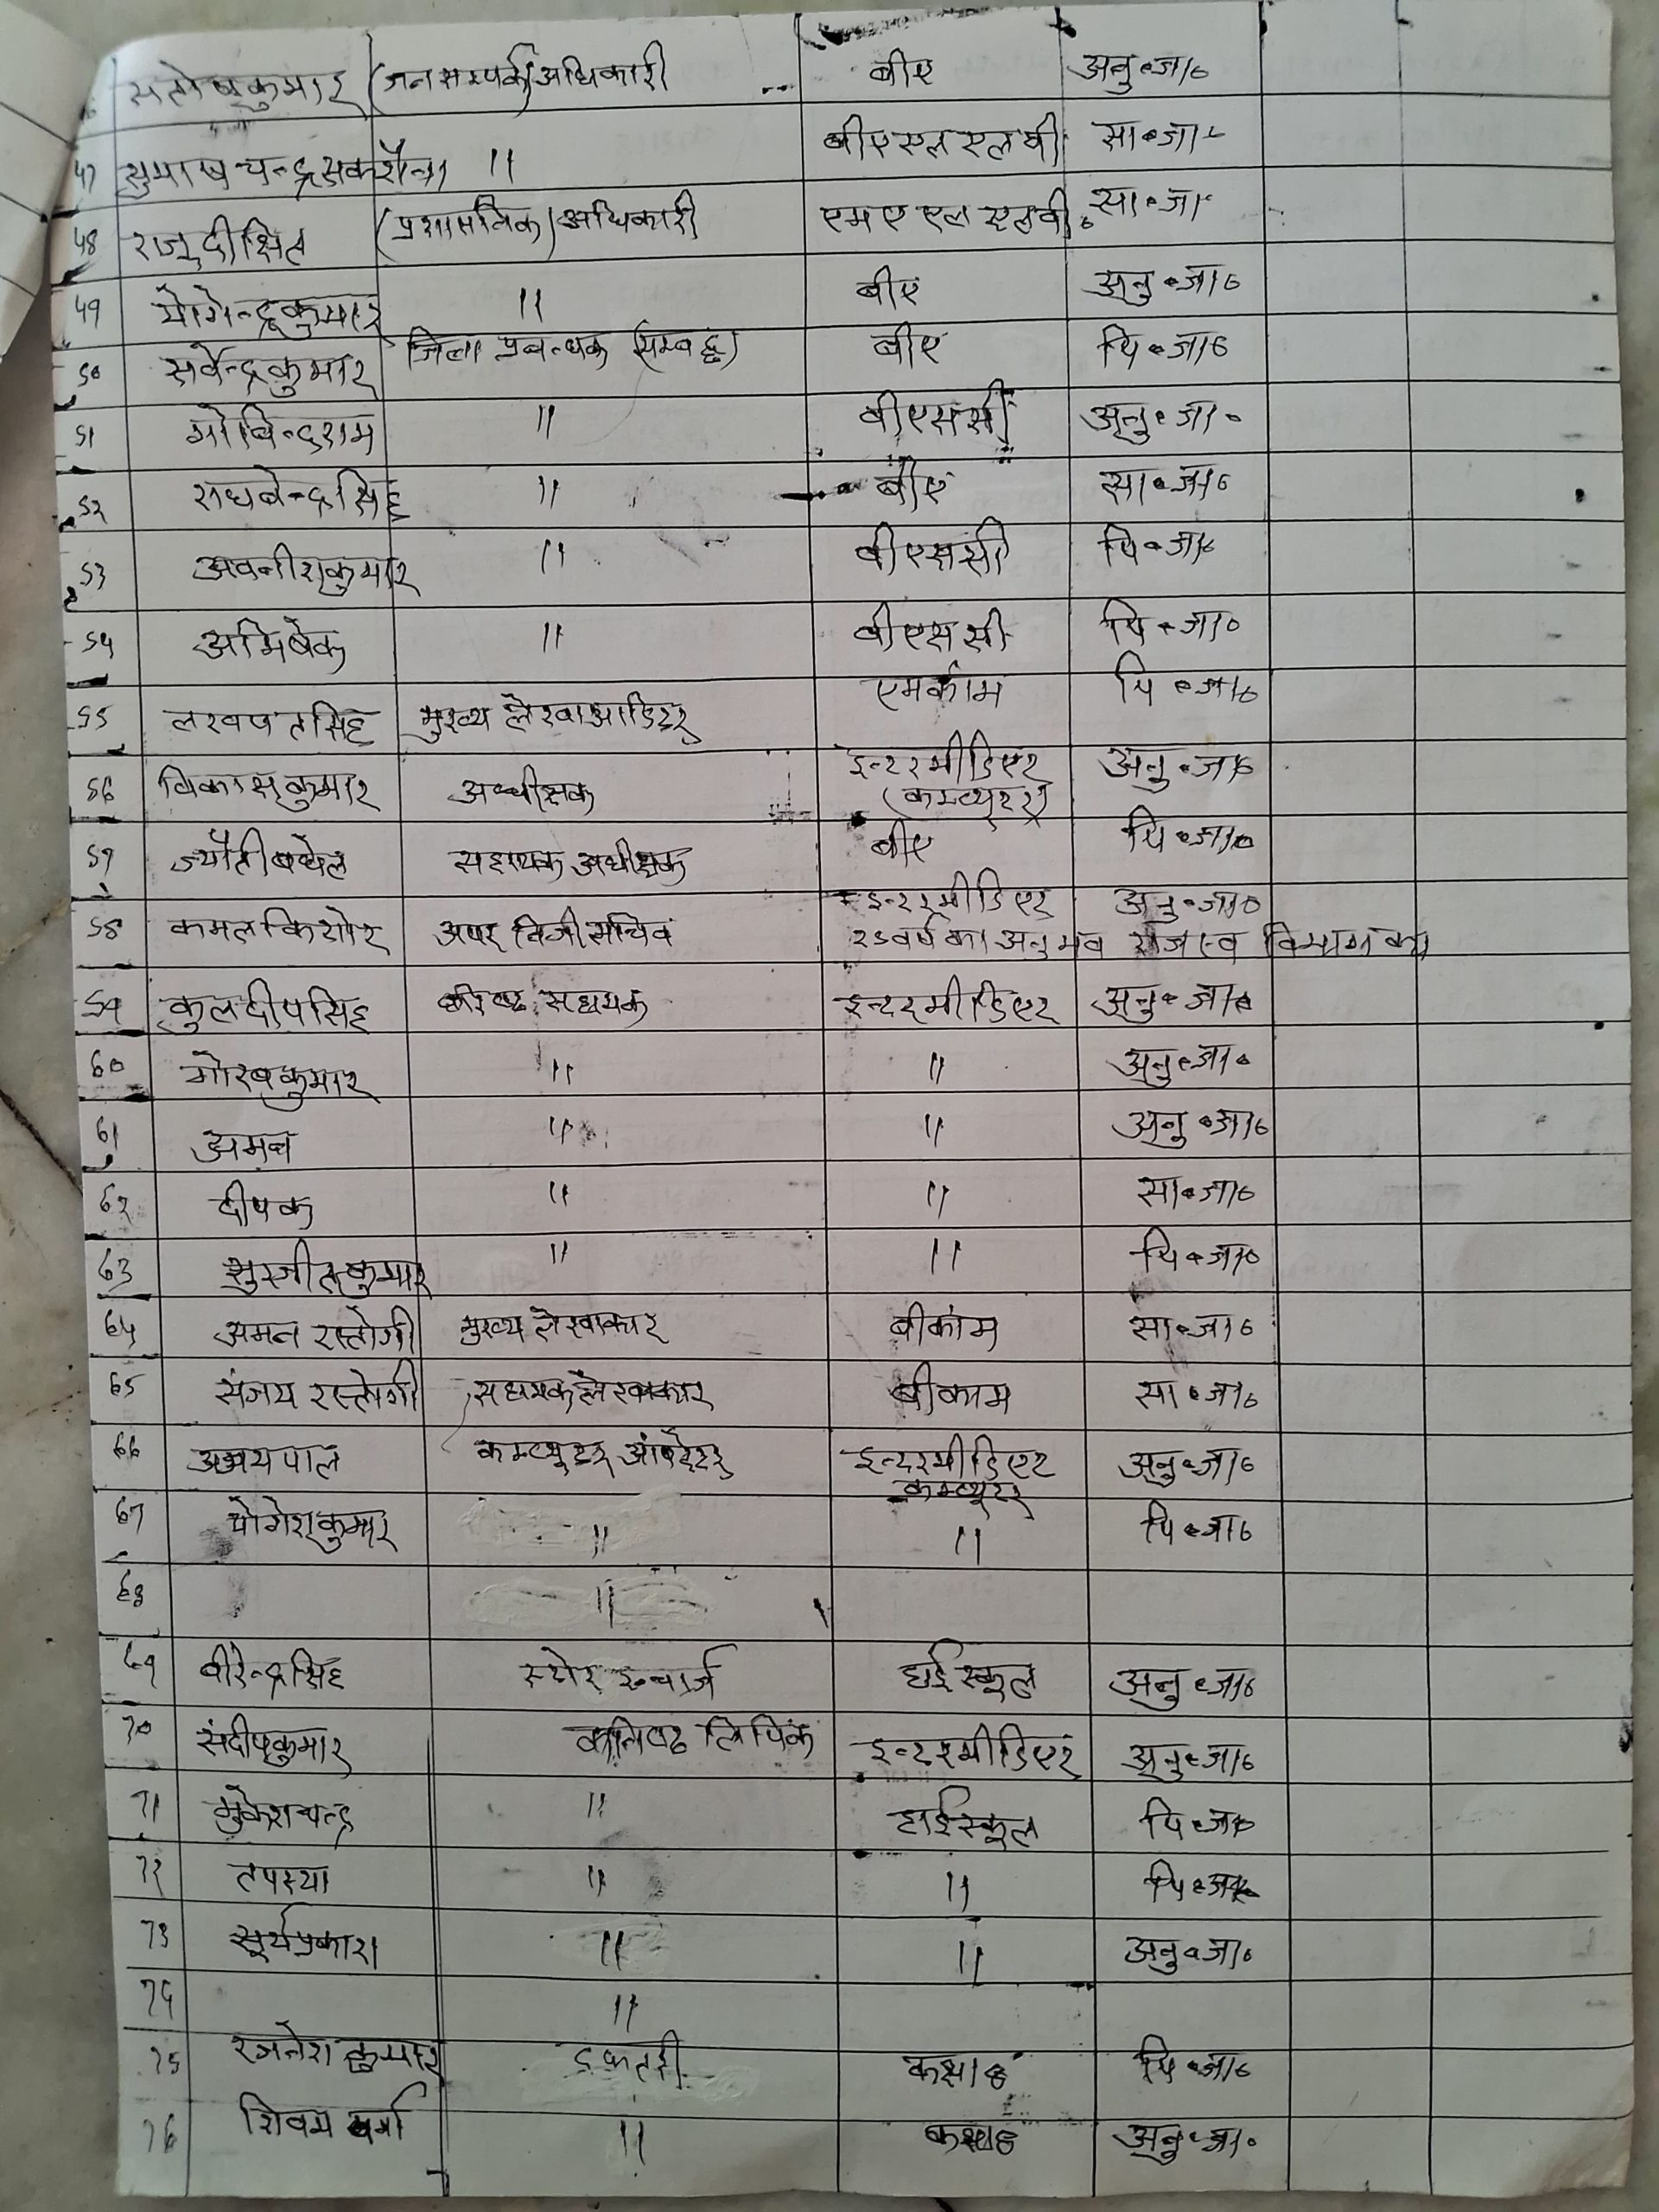 सतोष कुमार (जनसम्पर्क) अधिकारी बीए अनु०जा०
47 सुभाष चन्द्र सक्सैना " बीए एल एल बी सा०जा०
48 राजू दीक्षित (प्रशासनिक) अधिकारी एम ए एल एल बी सा०जा०
49 योगेन्द्र कुमार " बीए अनु०जा०
50 सर्वेन्द्र कुमार जिला प्रबन्धक (सम्बद्ध) बीए पि०जा०
51 गोविन्दराम " बीएससी अनु०जा०
52 राघवेन्द्र सिंह " बीए सा०जा०
53 अवनीश कुमार " बीएससी पि०जा०
54 अभिषेक " बीएससी पि०जा०
55 लखपत सिंह मुख्य लेखा आडिटर एमकाम पि०जा०
56 विकास कुमार अधीक्षक इन्टरमीडिएट (कम्प्यूटर) अनु०जा०
57 ज्योती बघेल सहायक अधीक्षक बीए पि०जा०
58 कमल किशोर अपर निजी सचिव इन्टरमीडिएट अनु०जा०
25 वर्ष का अनुभव राजस्व विभाग का
59 कुलदीप सिंह सहायक इन्टरमीडिएट अनु०जा०
60 गौरव कुमार " " अनु०जा०
61 अमन " " अनु०जा०
62 दीपक " " सा०जा०
63 सुरजीत कुमार " " पि०जा०
64 अमन रस्तोगी मुख्य लेखाकार बीकॉम सा०जा०
65 संजय रस्तोगी सहायक लेखाकार बीकाम सा०जा०
66 अभयपाल कम्प्यूटर ऑपरेटर इन्टरमीडिएट कम्प्यूटर अनु०जा०
67 योगेश कुमार " " पि०जा०
68 "
69 वीरेन्द्र सिंह स्टोर इन्चार्ज हाईस्कूल अनु०जा०
70 संदीप कुमार कनिष्ठ लिपिक इन्टरमीडिएट अनु०जा०
71 मुकेश चन्द्र " हाईस्कूल पि०जा०
72 तपस्या " " पि०जा०
73 सूर्यप्रकाश " " अनु०जा०
74 "
75 रजनेश कुमार दफ्तरी कक्षा 8 पि०जा०
76 शिवम वर्मा " कक्षा 8 अनु०जा०